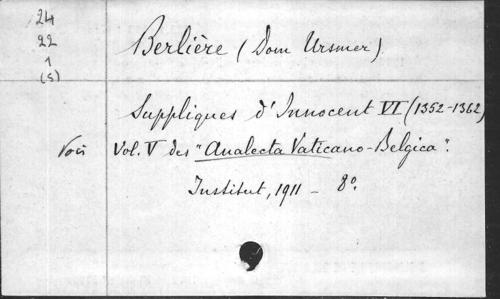 24
22
1
(5)
Berlière (Dom Ursmer)
Suppliques d'Innocent VI (1352-1362)
Voir Vol. V des "Analecta Vaticano-Belgica".
Institut, 1911 - 8º.